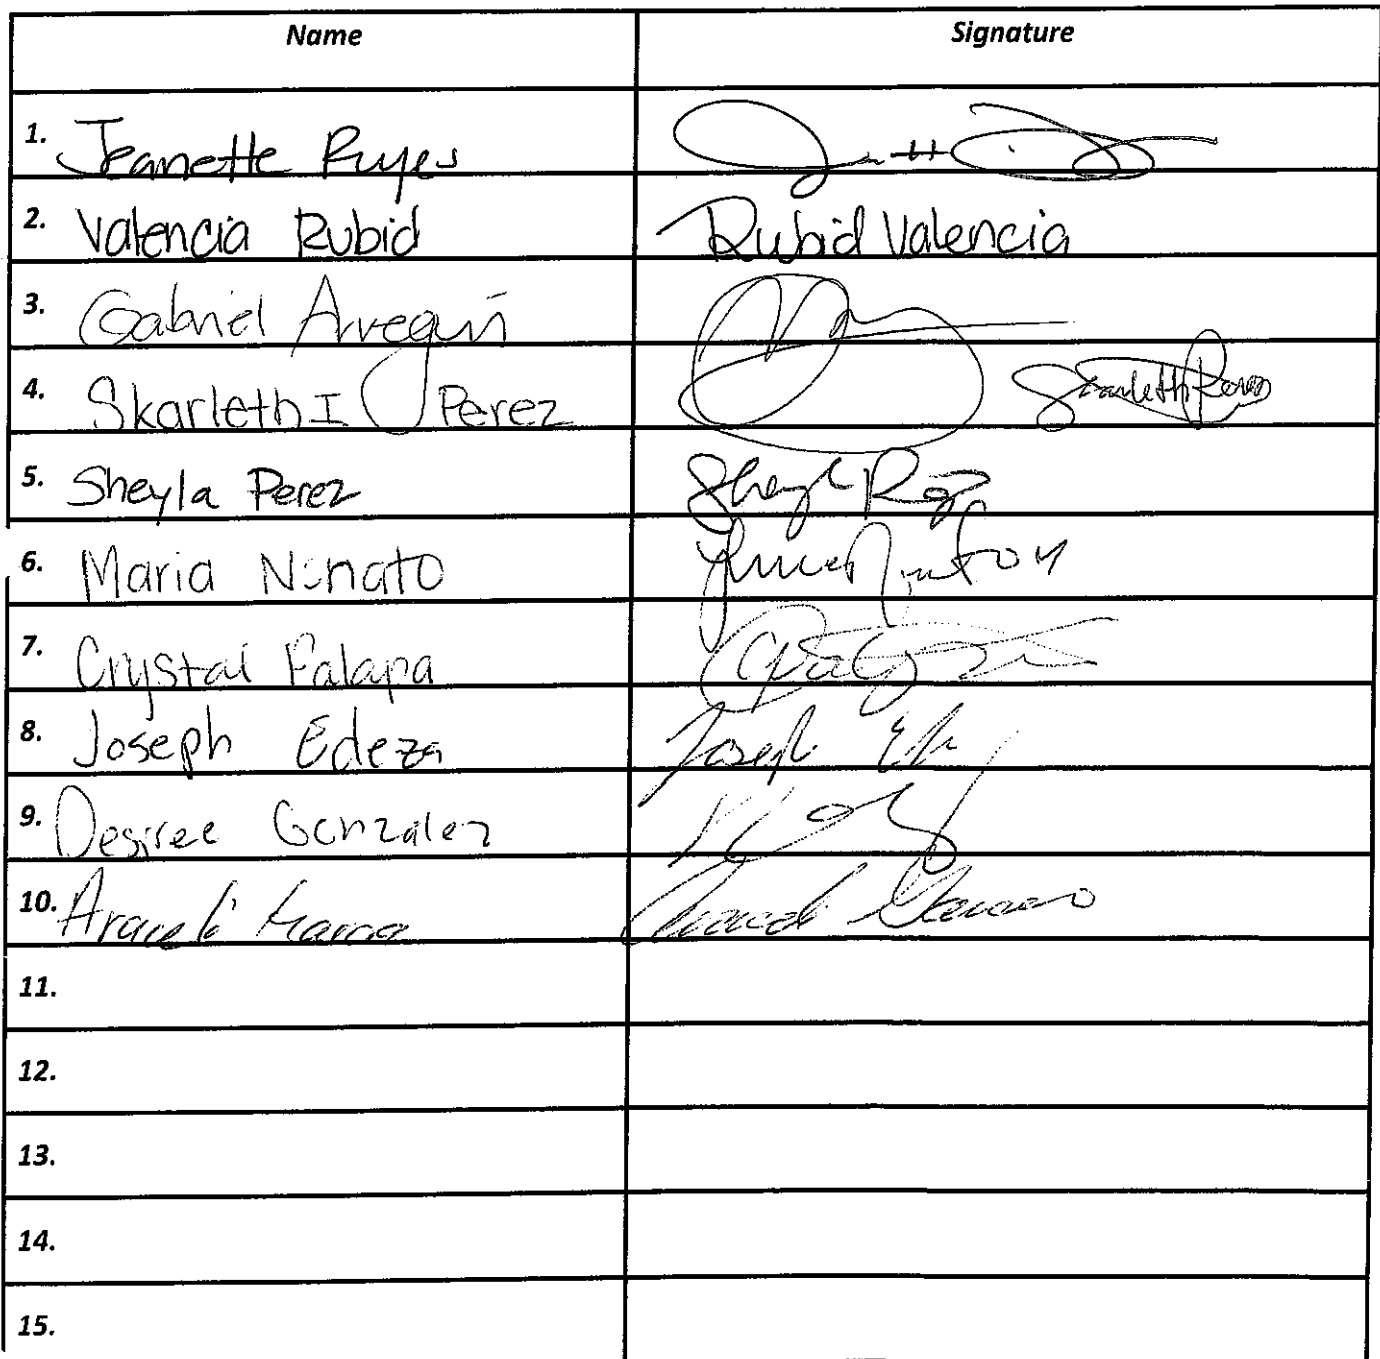 Name Signature
1. Jeanette
2. Valencia Rubid Rubid Valencia
3. Gabriel Arreguin
4. Skarleth I Perez Skarleth Perez
5. Sheyla Perez
6. Maria Nonato
7. Crystal Palapa
8. Joseph Edeza Joseph
9. Desiree Gonzalez
10. Araceli
11.
12.
13.
14.
15.